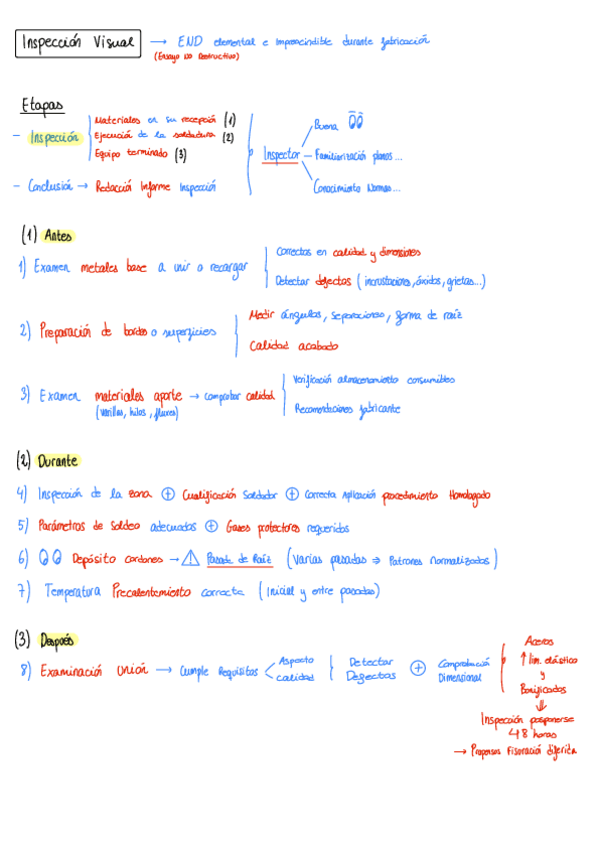 Inspección Visual → END elemental e imprescindible durante fabricación
(Ensayo No Destructivo)
Etapas
- Inspección
Materiales en su recepción (1)
Ejecución de la soldadura (2)
Equipo terminado (3)
Inspector
Buena
Familiarización planos...
Conocimiento Normas...
- Conclusión → Redacción Informe Inspección
(1) Antes
1) Examen metales base a unir o recargar
Correctos en calidad y dimensiones
Detectar defectos (incrustaciones, óxidos, grietas...)
2) Preparación de bordes o superficies
Medir ángulos, separaciones, forma de raíz
Calidad acabado
3) Examen materiales aporte → comprobar calidad
(varillas, hilos, fluxes)
Verificación almacenamiento consumibles
Recomendaciones fabricante
(2) Durante
4) Inspección de la zona ⊕ Cualificación Soldador ⊕ Correcta Aplicación procedimiento Homologado
5) Parámetros de Soldeo adecuados ⊕ Gases protectores requeridos
6) Depósito cordones → ⚠ Pasada de Raíz (Varias pasadas ⇒ Patrones normalizados)
7) Temperatura Precalentamiento correcta (Inicial y entre pasadas)
(3) Después
8) Examinación Unión → Cumple Requisitos
Aspecto
calidad
Detectar
Defectos
⊕ Comprobación
Dimensional
Aceros
↑ lím. elástico
y
Bonificados
⇓
Inspección posponerse
48 horas
→ Propensos Fisuración diferida